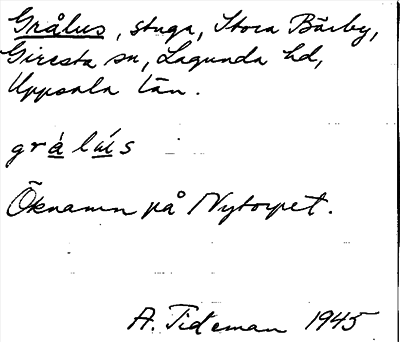 Grålus, stuga, Stora Bärby,
Giresta sn, Lagunda hd,
Uppsala län.
grå̀lú̵s
Öknamn på Nytorpet.
A. Tideman 1945